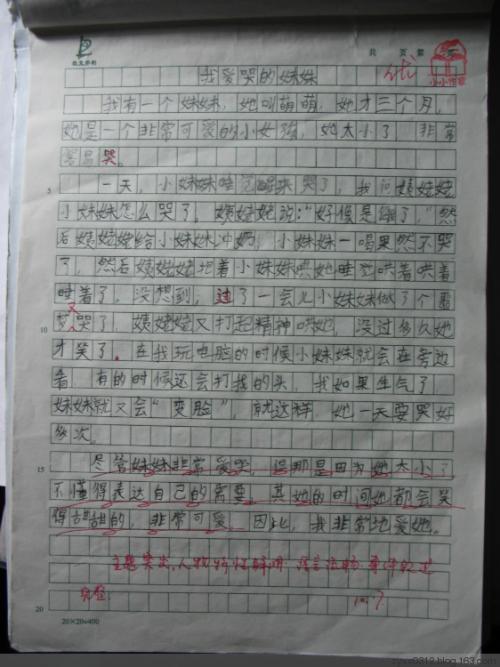 共 页 第 页
优
小小作家
我爱哭的妹妹
我有一个妹妹,她叫萌萌,她才三个月,
她是一个非常可爱的小女孩,她太小了 非常
容易哭。
一天,小妹妹睡觉醒来哭了,我问姨姥姥
小妹妹怎么哭了。姨姥姥说:“好像是饿了,”然
后姨姥姥给小妹妹冲奶,小妹妹一喝果然不哭
了,然后姨姥姥抱着小妹妹哄她睡觉哄着哄着
5
睡着了,没想到,过了一会儿小妹妹做了个噩
梦又哭了,姨姥姥又打起精神哄她,没过多久她
10
才笑了。在我玩电脑的时候小妹妹就会在旁边
看 有的时候还会打我的头,我如果生气了
妹妹就又会“变脸”,就这样 她一天要哭好
多次。
尽管妹妹非常爱哭,但那是因为她太小了
15
不懂得表达自己的需要,其她的时间她都会笑
得甜甜的,非常可爱 因此,我非常地爱她。
主题突出,人物特征鲜明 语言流畅
完整!
20
20×20=400